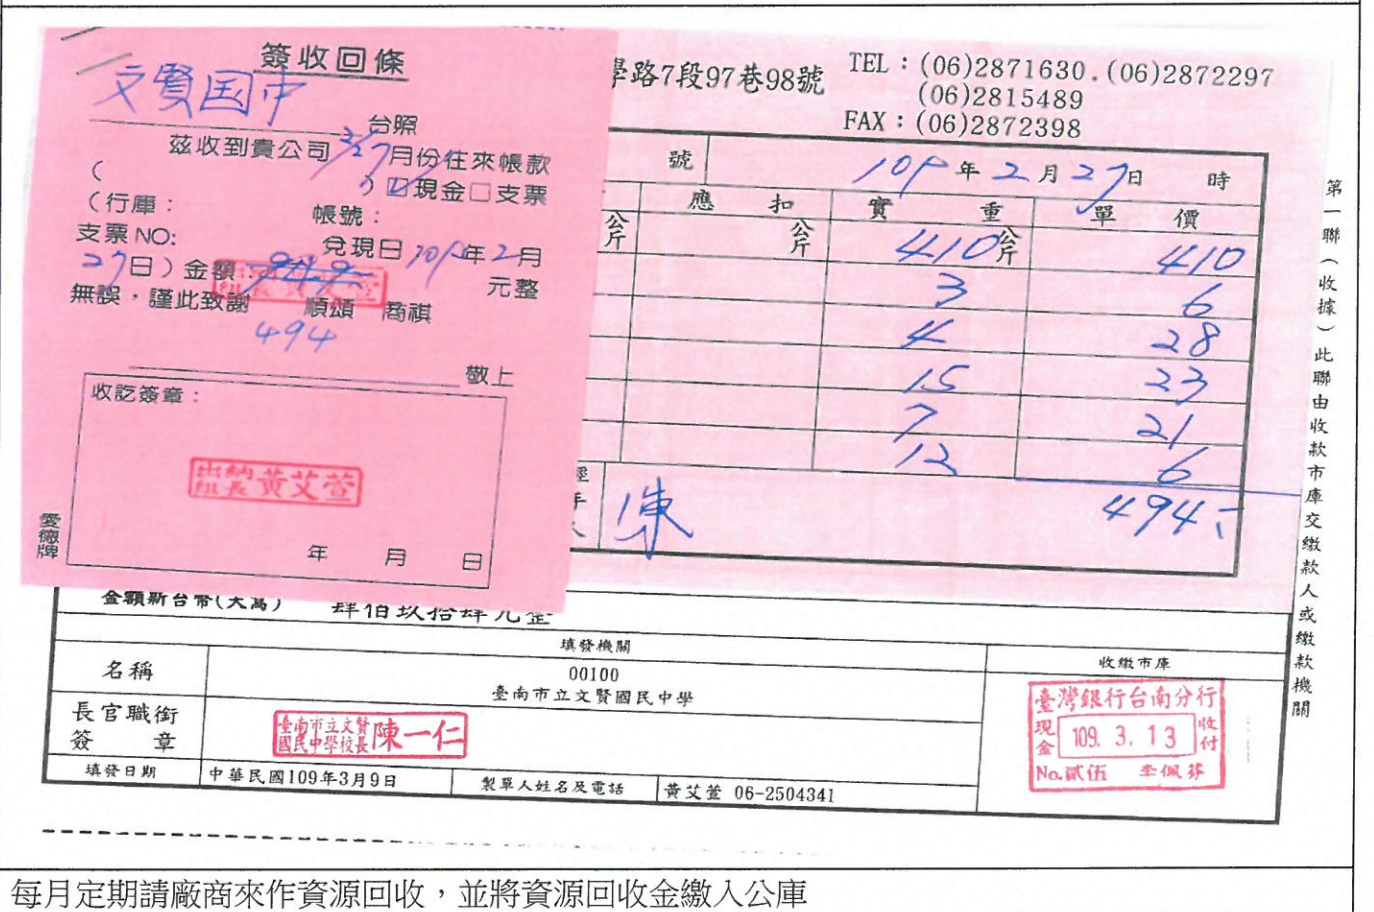 簽收回條
文賢国中
台照
茲收到貴公司 2/27 月份往來帳款
( ) ☑現金□支票
(行庫: 帳號:
支票 NO: 兌現日 109年2月
27日)金額: 元整
無誤,謹此致謝 順頌 商祺
494
敬上
收訖簽章:
出納組長 黃艾萱
年 月 日
愛德牌
學路7段97巷98號
TEL:(06)2871630.(06)2872297
(06)2815489
FAX:(06)2872398
號 109年2月27日 時
應 扣 實 重 單 價
公斤 公斤 410公斤 410
3 6
4 28
15 23
7 21
12 6
陳 494
第一聯(收據)此聯由收款市庫交繳款人或繳款機關
金額新台幣(大寫) 肆佰玖拾肆元整
填發機關 收繳市庫
名稱 00100
臺南市立文賢國民中學
長官職銜
簽 章
臺南市立文賢國民中學校長 陳一仁
臺灣銀行台南分行
現金 109. 3. 13 收付
No.貳伍 李佩芬
填發日期 中華民國109年3月9日 製單人姓名及電話 黃艾萱 06-2504341
每月定期請廠商來作資源回收,並將資源回收金繳入公庫